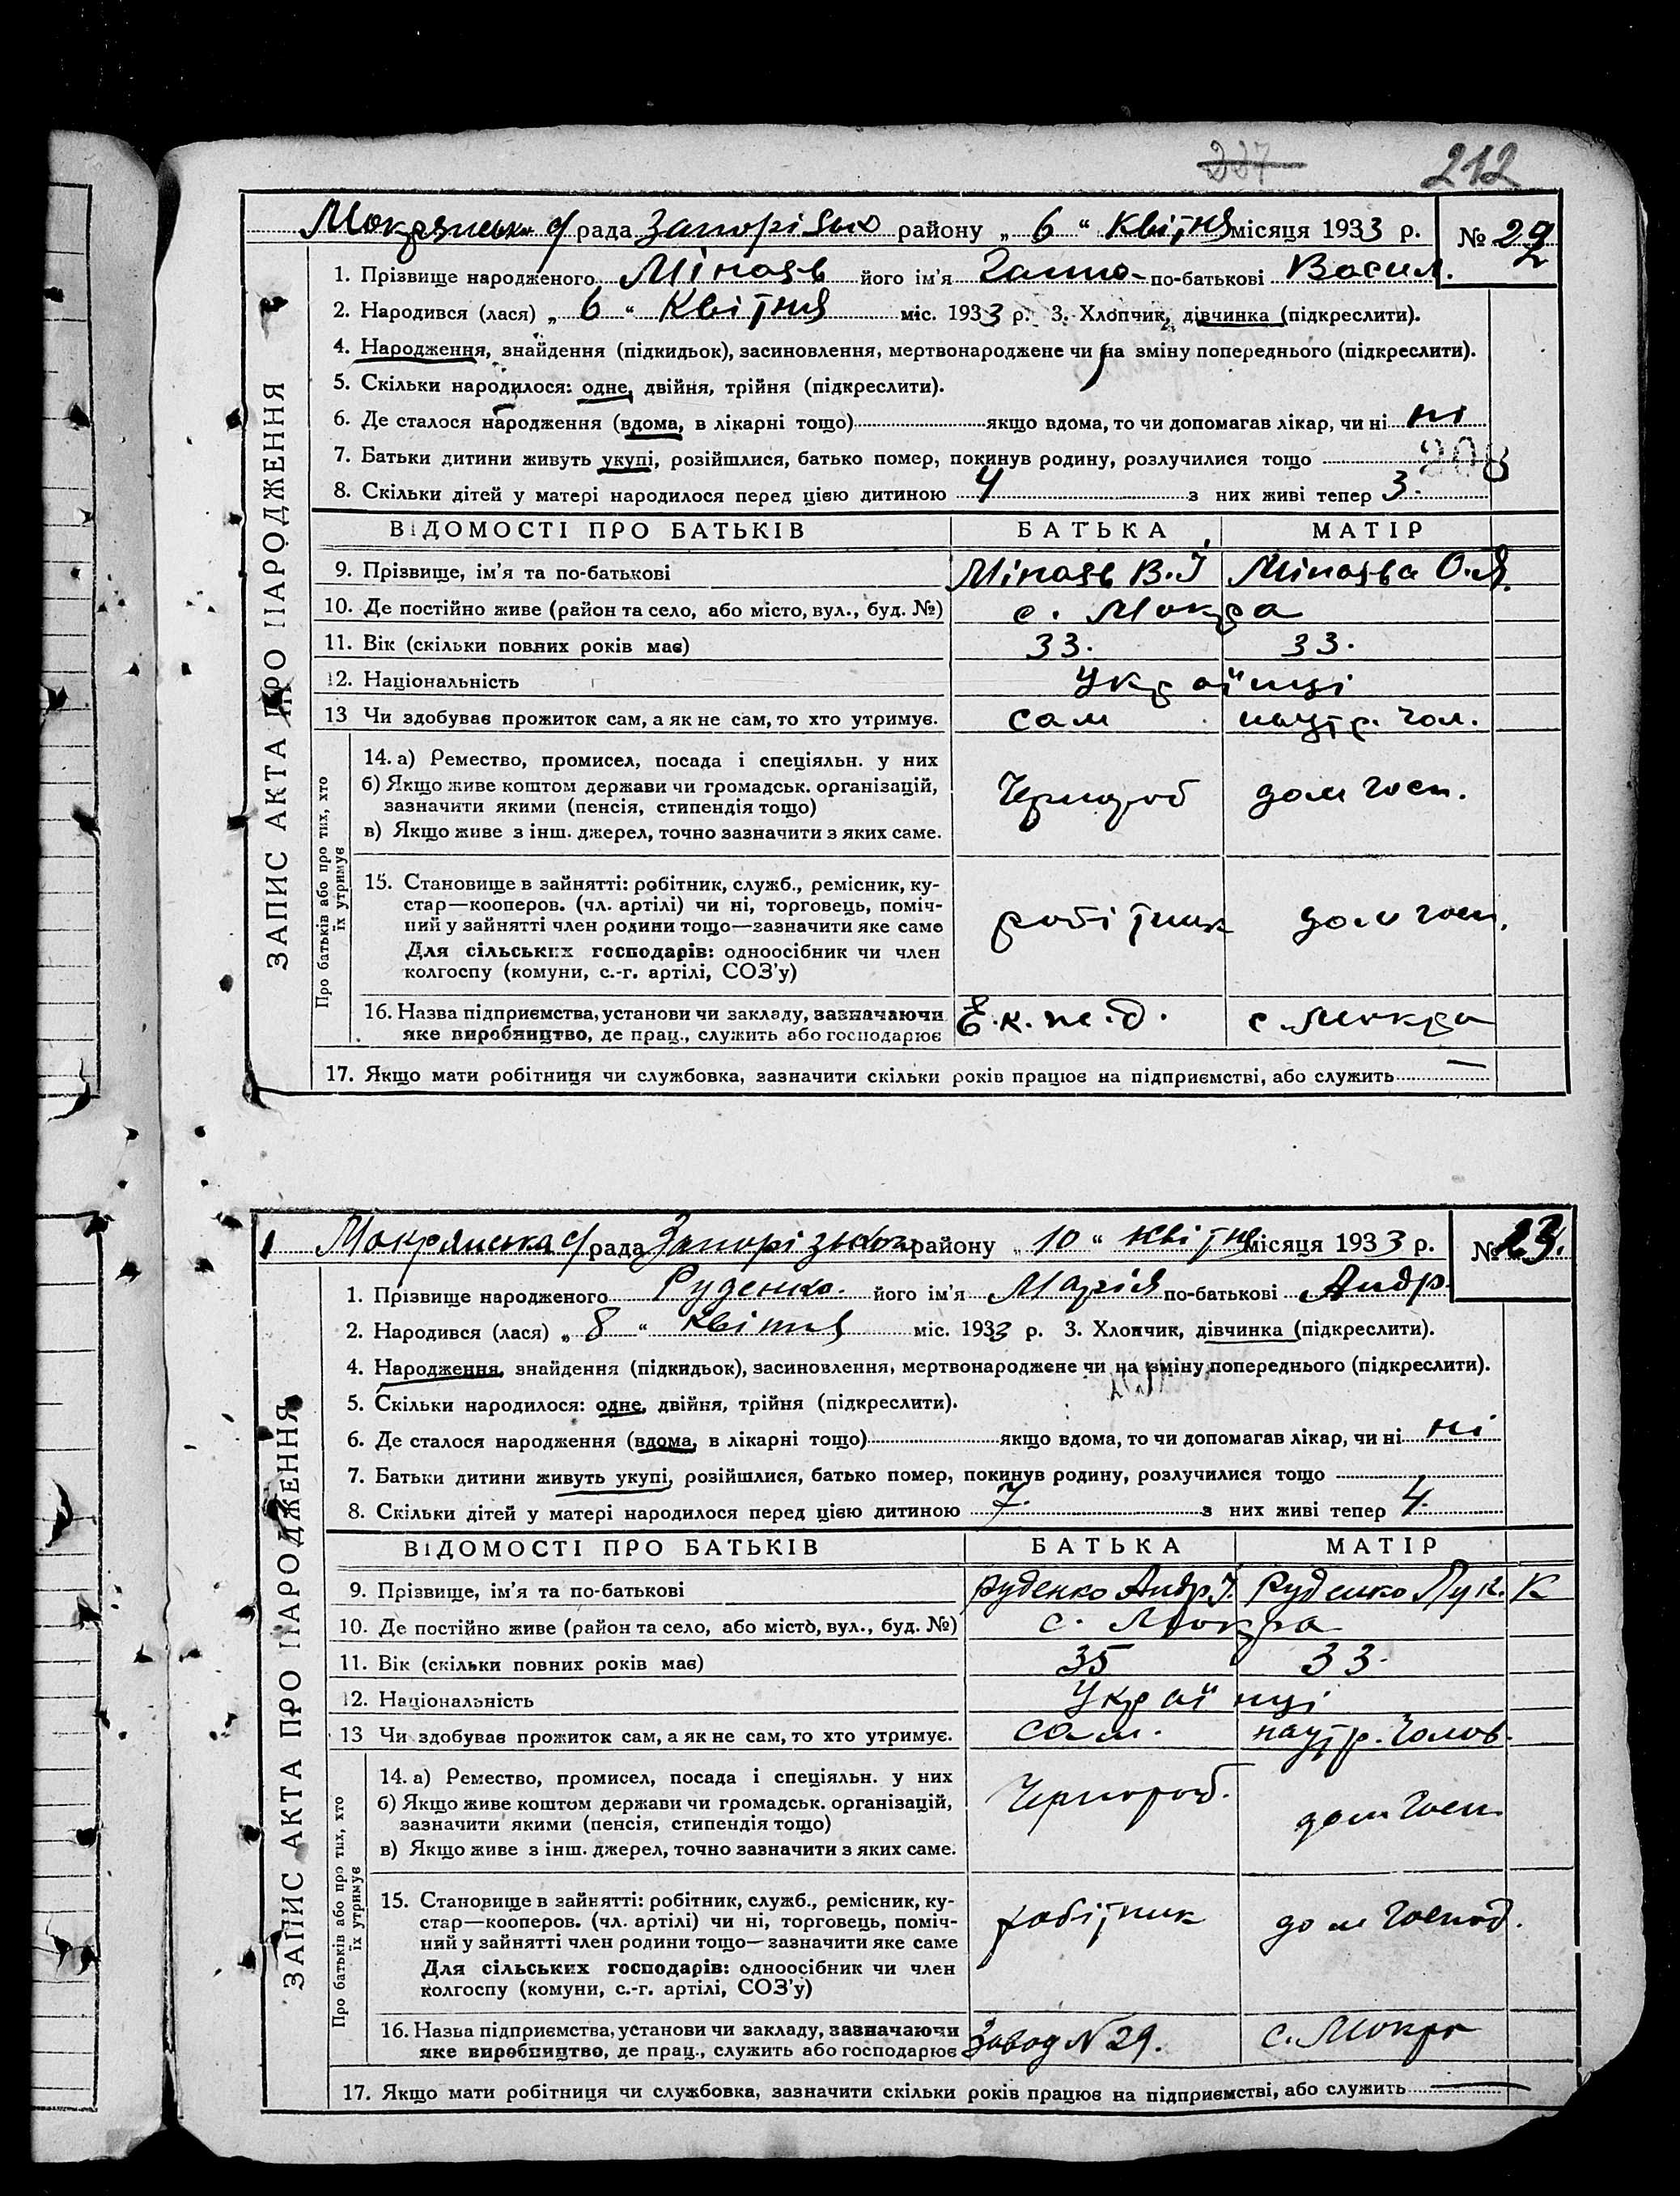 227 212
Мокрянська с/рада Запорізько району „ 6 “ Квітня місяця 1933 р. № 22
1. Прізвище народженого Мінаєв його ім'я по-батькові Васил.
2. Народився (лася) „ 6 “ Квітня міс. 1933 р. 3. Хлопчик, дівчинка (підкреслити).
4. Народження, знайдення (підкидьок), засиновлення, мертвонароджене чи на зміну попереднього (підкреслити).
5. Скільки народилося: одне, двійня, трійня (підкреслити).
6. Де сталося народження (вдома, в лікарні тощо) якщо вдома, то чи допомагав лікар, чи ні ні
7. Батьки дитини живуть укупі, розійшлися, батько помер, покинув родину, розлучилися тощо 208
8. Скільки дітей у матері народилося перед цією дитиною 4 з них живі тепер 3.
ЗАПИС АКТА ПРО НАРОДЖЕННЯ
ВІДОМОСТІ ПРО БАТЬКІВ БАТЬКА МАТІР
9. Прізвище, ім'я та по-батькові Мінаєв В.І Мінаєва О.Я.
10. Де постійно живе (район та село, або місто, вул., буд. №) с. Мокра
11. Вік (скільки повних років має) 33. 33.
12. Національність Українці
13 Чи здобуває прожиток сам, а як не сам, то хто утримує. сам чол.
Про батьків або про тих, хто
їх утримує
14. а) Ремество, промисел, посада і спеціяльн. у них
б) Якщо живе коштом держави чи громадськ. організацій,
зазначити якими (пенсія, стипендія тощо) Чернороб дом госп.
в) Якщо живе з інш. джерел, точно зазначити з яких саме.
15. Становище в зайнятті: робітник, служб., ремісник, ку-
стар—кооперов. (чл. артілі) чи ні, торговець, поміч-
ний у зайнятті член родини тощо—зазначити яке саме робітник дом госп.
Для сільських господарів: одноосібник чи член
колгоспу (комуни, с.-г. артілі, СОЗ'у)
16. Назва підприємства, установи чи закладу, зазначаючи с. Мокра
яке виробництво, де прац., служить або господарює
17. Якщо мати робітниця чи службовка, зазначити скільки років працює на підприємстві, або служить —
Мокрянська с/рада Запорізького району „ 10 “ квітня місяця 1933 р. № 23.
1. Прізвище народженого Руденко. його ім'я Марія по-батькові Андр.
2. Народився (лася) „ 8 “ квітня міс. 1933 р. 3. Хлопчик, дівчинка (підкреслити).
4. Народження, знайдення (підкидьок), засиновлення, мертвонароджене чи на зміну попереднього (підкреслити).
5. Скільки народилося: одне, двійня, трійня (підкреслити).
6. Де сталося народження (вдома, в лікарні тощо) якщо вдома, то чи допомагав лікар, чи ні ні
7. Батьки дитини живуть укупі, розійшлися, батько помер, покинув родину, розлучилися тощо
8. Скільки дітей у матері народилося перед цією дитиною 7. з них живі тепер 4.
ЗАПИС АКТА ПРО НАРОДЖЕННЯ
ВІДОМОСТІ ПРО БАТЬКІВ БАТЬКА МАТІР
9. Прізвище, ім'я та по-батькові Руденко Андр.І. Руденко Лук. К
10. Де постійно живе (район та село, або місто, вул., буд. №) с. Мокра
11. Вік (скільки повних років має) 35 33.
12. Національність Українці
13 Чи здобуває прожиток сам, а як не сам, то хто утримує. сам. Чолов.
Про батьків або про тих, хто
їх утримує
14. а) Ремество, промисел, посада і спеціяльн. у них
б) Якщо живе коштом держави чи громадськ. організацій, Чернороб.
зазначити якими (пенсія, стипендія тощо) дом госп
в) Якщо живе з інш. джерел, точно зазначити з яких саме.
15. Становище в зайнятті: робітник, служб., ремісник, ку-
стар—кооперов. (чл. артілі) чи ні, торговець, поміч- робітник дом господ.
ний у зайнятті член родини тощо—зазначити яке саме
Для сільських господарів: одноосібник чи член
колгоспу (комуни, с.-г. артілі, СОЗ'у)
16. Назва підприємства, установи чи закладу, зазначаючи Завод N 29. с. Мокра
яке виробництво, де прац., служить або господарює
17. Якщо мати робітниця чи службовка, зазначити скільки років працює на підприємстві, або служить —